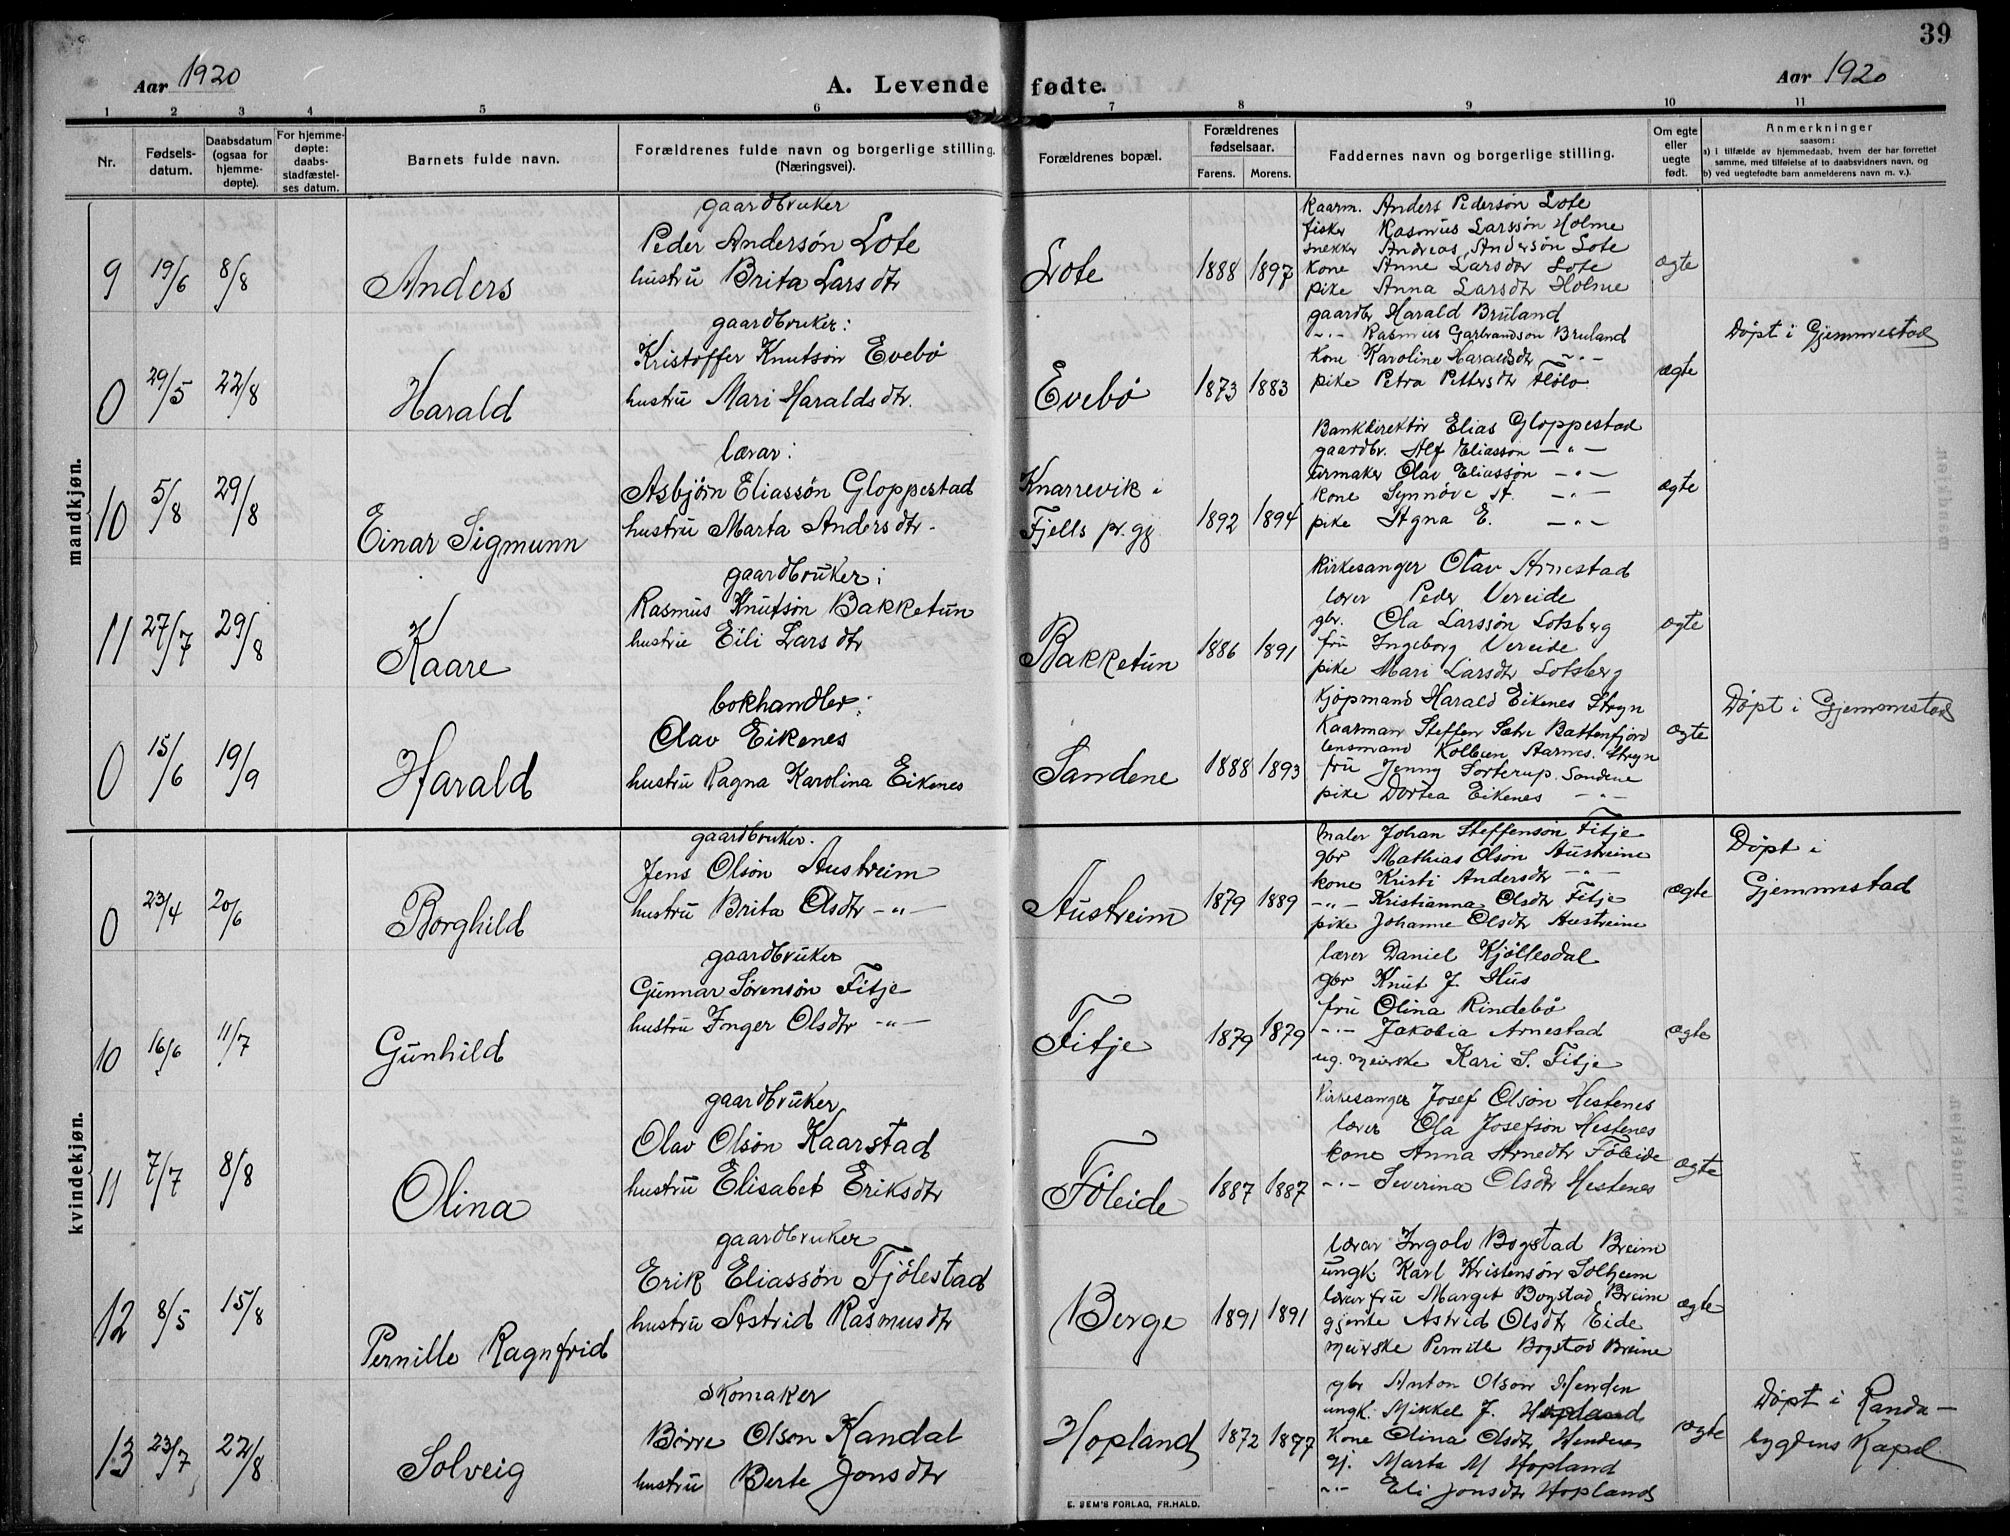 39
Aar 1920
A. Levende fødte.
Aar 1920
1 2 3 4 5 6 7 8 9 10 11
Nr.
Fødsels-
datum.
Daabsdatum
(ogsaa for
hjemme-
døpte).
For hjemme-
døpte:
daabs-
stadfæstel-
ses datum.
Barnets fulde navn.
Forældrenes fulde navn og borgerlige stilling.
(Næringsvei).
Forældrenes bopæl.
Forældrenes
fødselsaar.
Farens. Morens.
Faddernes navn og borgerlige stilling.
Om egte
eller
uegte
født.
Anmerkninger
saasom:
a) i tilfælde av hjemmedaab, hvem der har forrettet
samme, med tilføielse af to daabsvidners navn, og
b) ved uegtefødte barn anmelderens navn m. v.).
mandkjøn.
9 19/6 8/8 Anders
gaardbruker
Peder Andersøn Lote
hustru Brita Larsdtr
Lote 1888 1897
kaarm. Anders Pedersøn Lote
fisker Rasmus Larssøn Holme
snekker Andreas Andersøn Lote
kone Anne Larsdtr Lote
pike Anna Larsdtr Holme
ægte
0 29/5 22/8 Harald
gaardbruker:
Kristoffer Knutsøn Evebø
hustru Mari Haraldsdtr.
Evebø 1873 1883
gaardbr Harald Bruland
-"- Rasmus Garbrandsøn Bruland
kone Karoline Haraldsdtr -"-
pike Petra Pettersdtr Flølo
ægte
Døpt i Gjemmestad
10 5/8 29/8 Einar Sigmunn
lærar:
Asbjørn Eliassøn Gloppestad
hustru Marta Andersdtr.
Knarrevik i
Fjells pr.gj.
1892 1894
Bankdirektør Elias Gloppestad
gaardbr. Alf Eliassøn -"-
urmaker Olav Eliassøn -"-
kone Synnøve A. -"-
pike Agna E. -"-
ægte
11 27/7 29/8 Kaare
gaardbruker:
Rasmus Knutsøn Bakketun
hustru Eili Larsdtr
Bakketun 1886 1891
kirkesanger Olav Arnestad
lærer Peder Vereide
gbr. Ola Larssøn Lotsberg
fru Ingeborg Vereide
pike Mari Larsdtr Lotsberg
ægte
0 15/6 19/9 Harald
bokhandler:
Olav Eikenes
hustru Ragna Karolina Eikenes
Sandene 1888 1893
kjøpmand Harald Eikenes Stryn
kaarman Steffen Sætre Battenfjord
lensmand Kolbein Aarnes. Stryn
fru Jenny Sorterup. Sandene
pike Dortea Eikenes -"-
ægte
Døpt i Gjemmestad
kvindekjøn.
0 23/4 20/6 Borghild
gaardbruker.
Jens Olsøn Austreim
hustru Brita Olsdtr -"-
Austreim 1879 1889
maler Johan Steffensøn Fitje
gbr Mathias Olsøn Austreim
kone Kristi Andersdtr -"-
-"- Kristianna Olsdtr Fitje
pike Johanne Olsdtr Austreim
ægte
Døpt i
Gjemmestad
10 16/6 11/7 Gunhild
gaardbruker
Gunnar Sørensøn Fitje
hustru Inger Olsdtr -"-
Fitje 1879 1879
lærer Daniel Kjøllesdal
gbr Knut J. Hus
fru Olina Rindebø
-"- Jakobia Arnestad
ug. meierske Kari S. Fitje
ægte
11 7/7 8/8 Olina
gaardbruker
Olav Olsøn Kaarstad
hustru Elisabet Eriksdtr
Føleide 1887 1887
Kirkesanger Josef Olsøn Hestenes
lærer Ola Josefsøn Hestenes
kone Anna Arnedtr Føleide
-"- Severina Olsdtr Hestenes
ægte
12 8/5 15/8 Pernille Ragnfrid
gaardbruker
Erik Eliassøn Fjølestad
hustru Astrid Rasmusdtr
Berge 1891 1891
lærar Ingolv Bogstad Breim
ungk. Karl Kristensøn Solheim
lærerfru Margit Bogstad Breim
gjente Astrid Olsdtr Eide
meierske Pernille Bogstad Breim
ægte
13 23/7 22/8 Solveig
skomaker
Børre Olson Kandal
hustru Berte Jonsdtr
Hopland 1872 1877
gbr Anton Olson Henden
ungk. Mikkel J. Hopland
kone Olina Olsdtr Henden
gj. Marta M Hopland
-"- Eli Jonsdtr Hopland
ægte
Døpt i Randa-
bygdens Kapel
E. SEM'S FORLAG, FR.HALD.